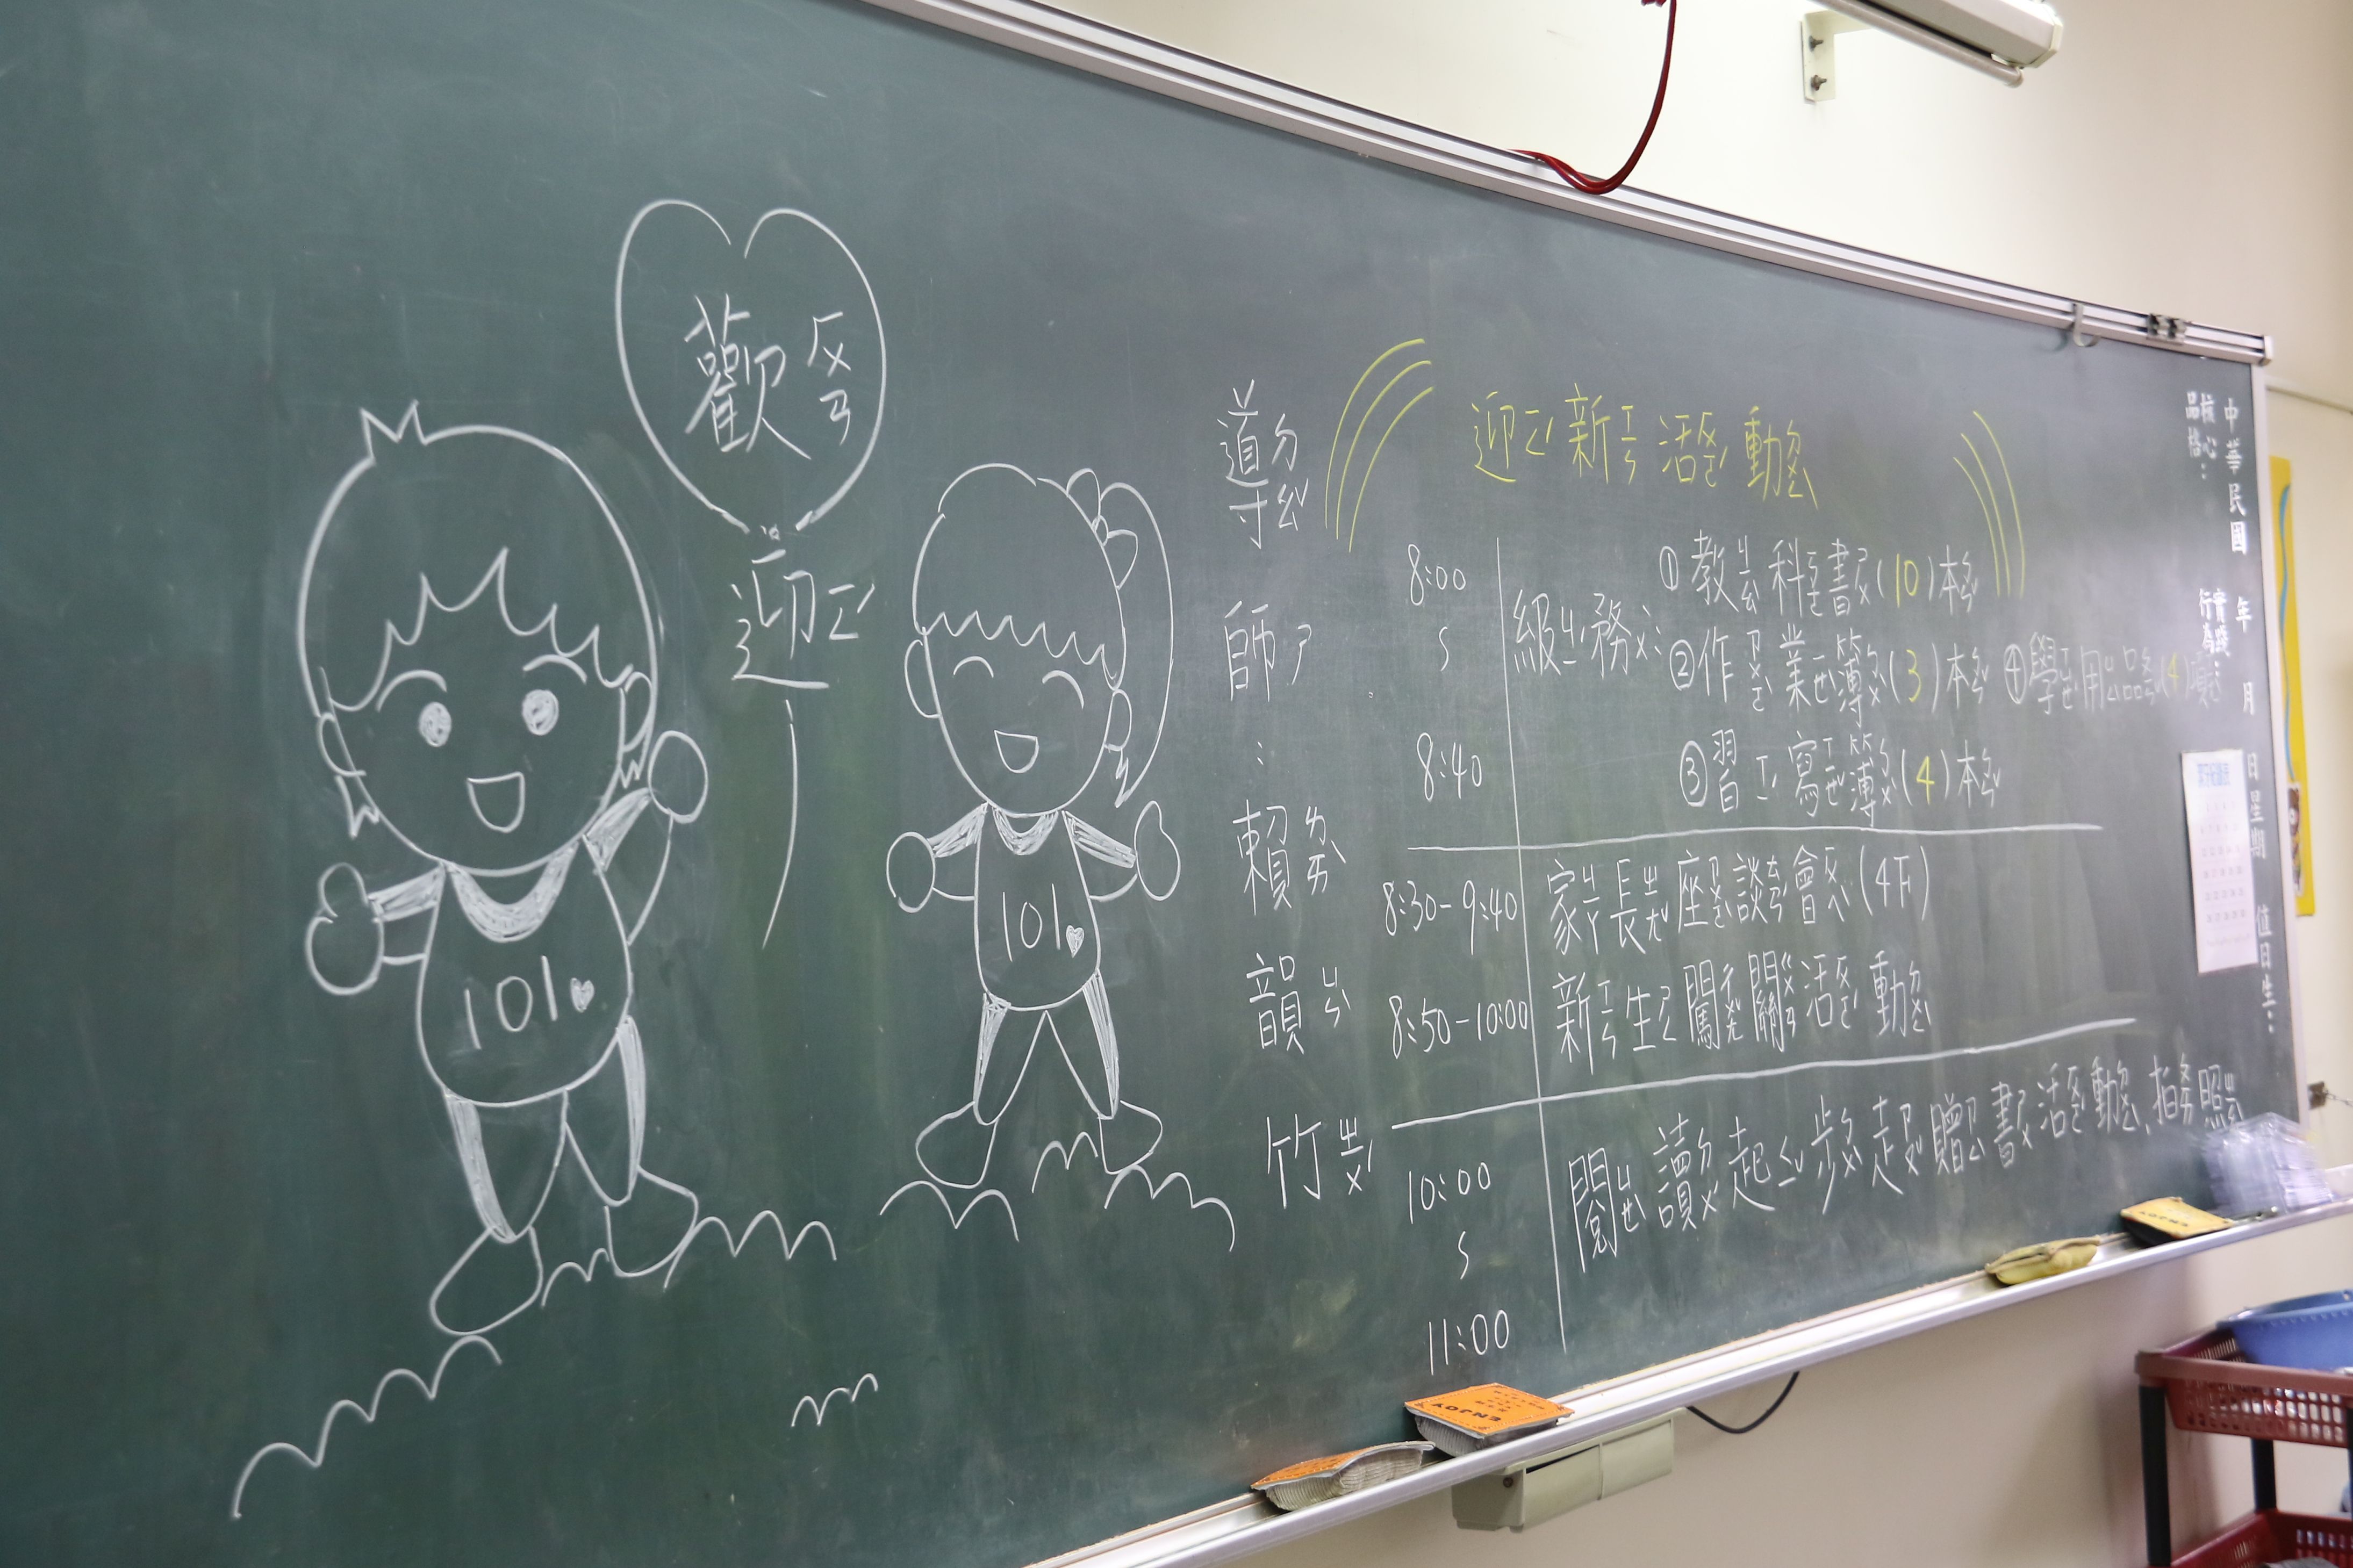 歡ㄏㄨㄢ
迎ㄧㄥˊ
101
101
導ㄉㄠˇ師ㄕ：賴ㄌㄞˋ韻ㄩㄣˋ竹ㄓㄨˊ
迎ㄧㄥˊ新ㄒㄧㄣ活ㄏㄨㄛˊ動ㄉㄨㄥˋ
8:00
∫
8:40
級ㄐㄧˊ務ㄨˋ：
①教ㄐㄧㄠ科ㄎㄜ書ㄕㄨ(10)本ㄅㄣˇ
②作ㄗㄨㄛˋ業ㄧㄝˋ簿ㄅㄨˋ(3)本ㄅㄣˇ ④學ㄒㄩㄝˊ用ㄩㄥˋ品ㄆㄧㄣˇ(4)項ㄒㄧㄤˋ
③習ㄒㄧˊ寫ㄒㄧㄝˇ簿ㄅㄨˋ(4)本ㄅㄣˇ
8:30-9:40 家ㄐㄧㄚ長ㄓㄤˇ座ㄗㄨㄛˋ談ㄊㄢˊ會ㄏㄨㄟˋ(4F)
8:50-10:00 新ㄒㄧㄣ生ㄕㄥ闖ㄔㄨㄤˇ關ㄍㄨㄢ活ㄏㄨㄛˊ動ㄉㄨㄥˋ
10:00
∫
11:00
閱ㄩㄝˋ讀ㄉㄨˊ起ㄑㄧˇ步ㄅㄨˋ走ㄗㄡˇ贈ㄗㄥˋ書ㄕㄨ活ㄏㄨㄛˊ動ㄉㄨㄥˋ、拍ㄆㄞ照ㄓㄠˋ
中華民國 年 月 日星期 值日生：
核心品格：
實踐行為：
ENJOY
ENJOY